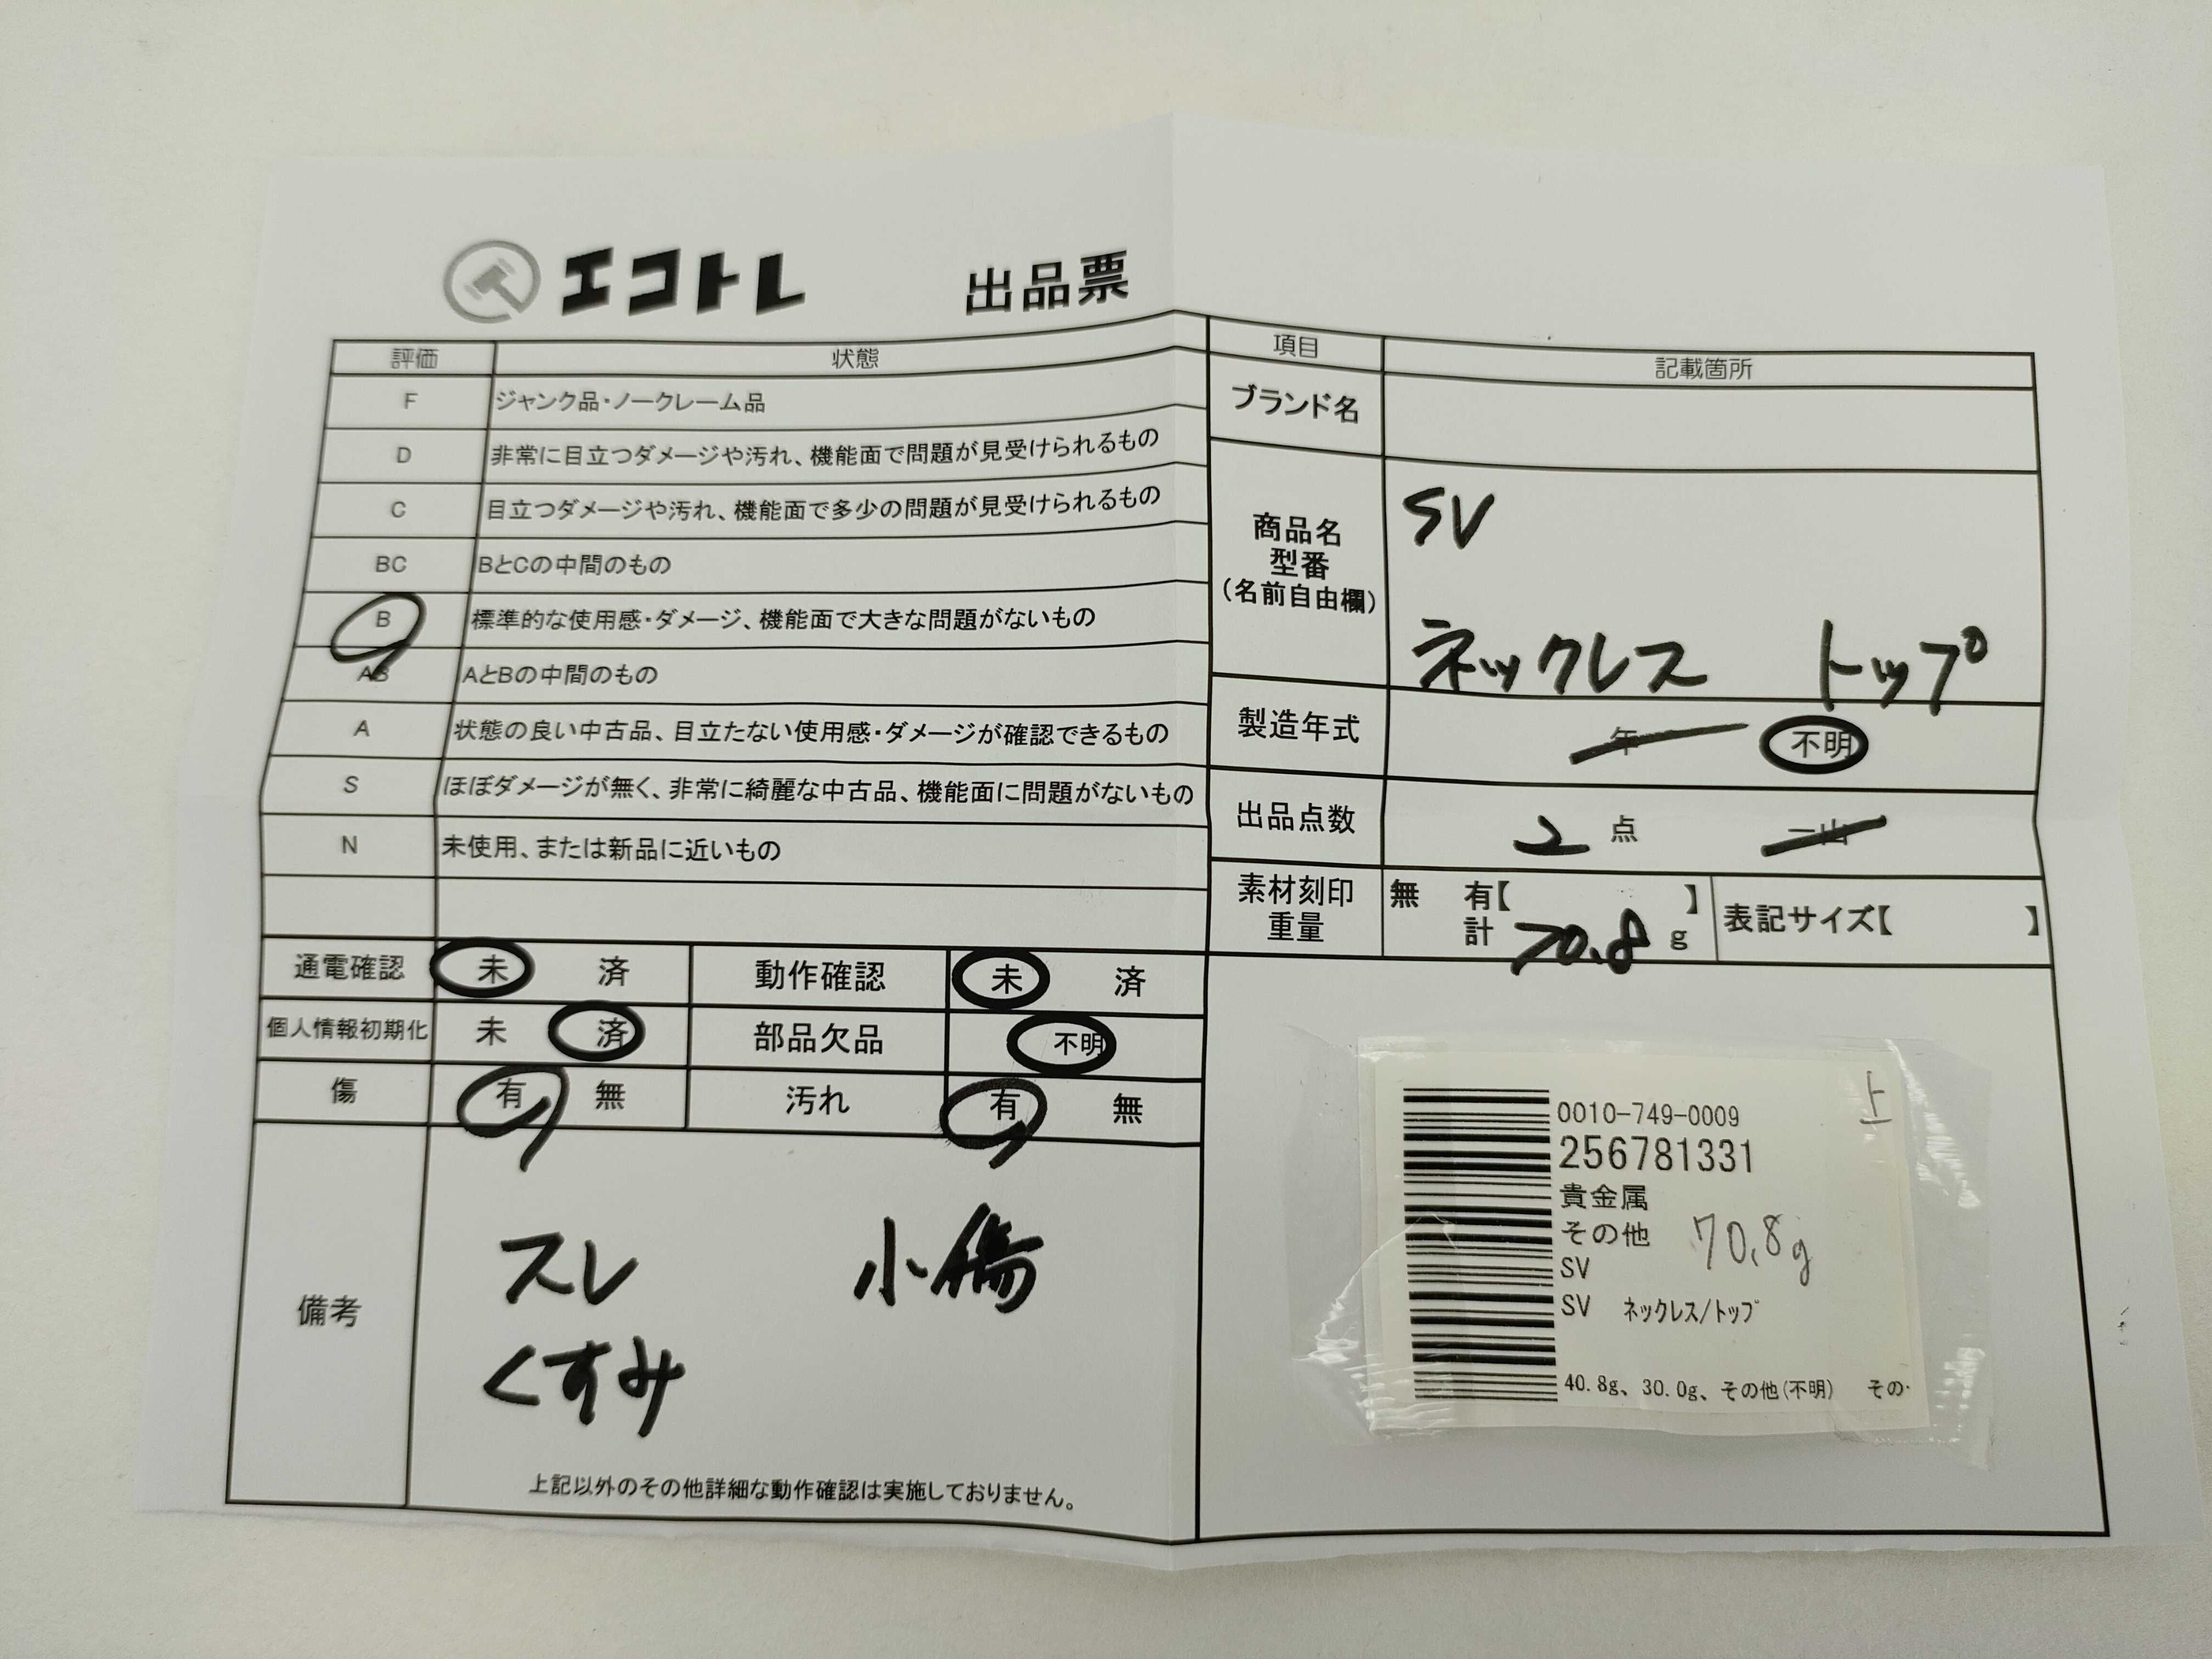 エコトレ 出品票
評価 状態
F ジャンク品・ノークレーム品
D 非常に目立つダメージや汚れ、機能面で問題が見受けられるもの
C 目立つダメージや汚れ、機能面で多少の問題が見受けられるもの
BC BとCの中間のもの
B 標準的な使用感・ダメージ、機能面で大きな問題がないもの
AB AとBの中間のもの
A 状態の良い中古品、目立たない使用感・ダメージが確認できるもの
S ほぼダメージが無く、非常に綺麗な中古品、機能面に問題がないもの
N 未使用、または新品に近いもの
通電確認 未 済 動作確認 未 済
個人情報初期化 未 済 部品欠品 不明
傷 有 無 汚れ 有 無
備考
スレ 小傷
くすみ
上記以外のその他詳細な動作確認は実施しておりません。
項目 記載箇所
ブランド名
商品名
型番
(名前自由欄)
SV
ネックレス トップ
製造年式 年 不明
出品点数 2 点 一山
素材刻印
重量
無 有【 】
計 70.8 g
表記サイズ【 】
上
0010-749-0009
256781331
貴金属
その他 70.8g
SV
SV ネックレス/トップ
40.8g、30.0g、その他(不明) その